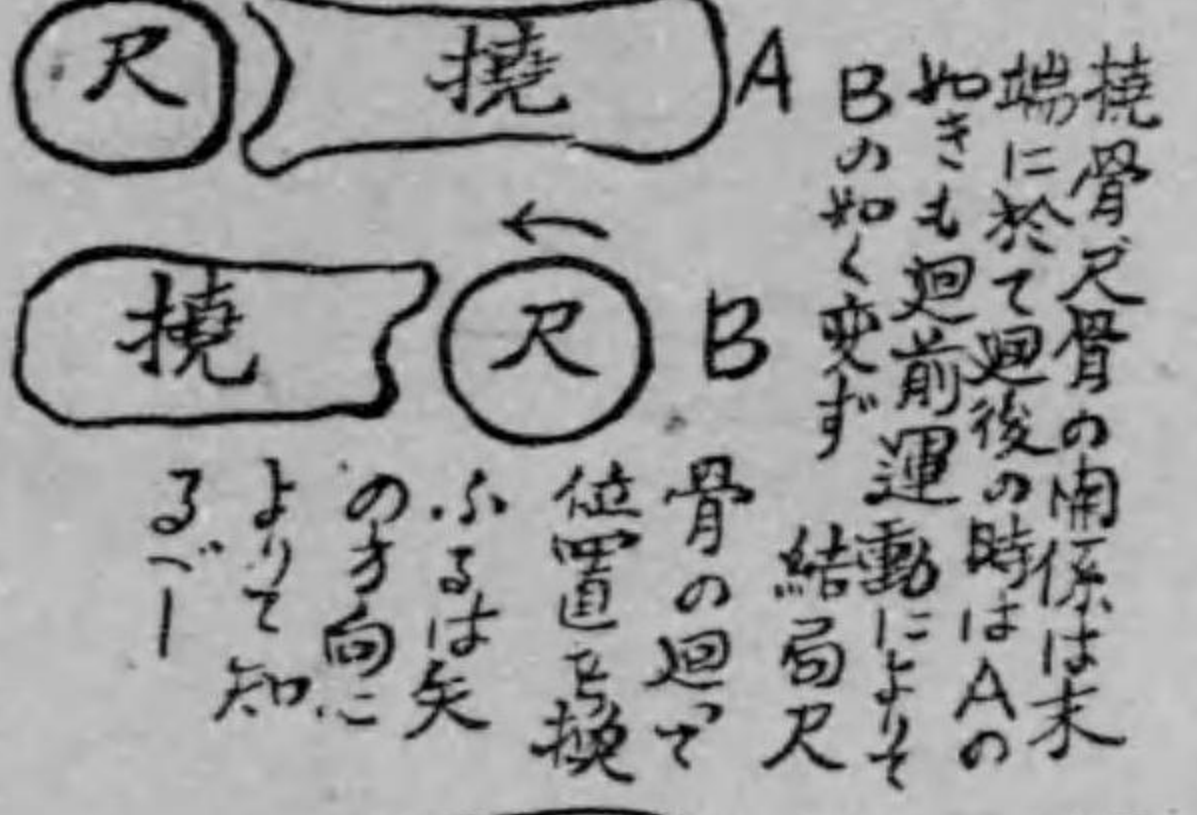 撓骨尺骨の関係は末
端に於て廻後の時はAの
如きも廻前運動によりて
Bの如く変ず 結局尺
骨の廻って
位置を換
ふるは矢
の方向に
よりて知
るべし
尺 撓 A
撓 尺 B